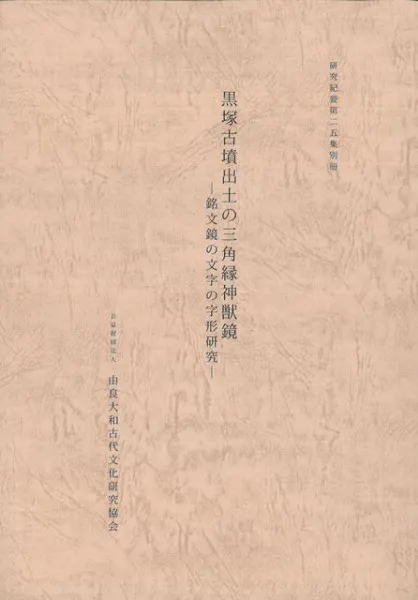 研究紀要第二五集別冊
黒塚古墳出土の三角縁神獣鏡
―銘文鏡の文字の字形研究―
公益財団法人
由良大和古代文化研究協会